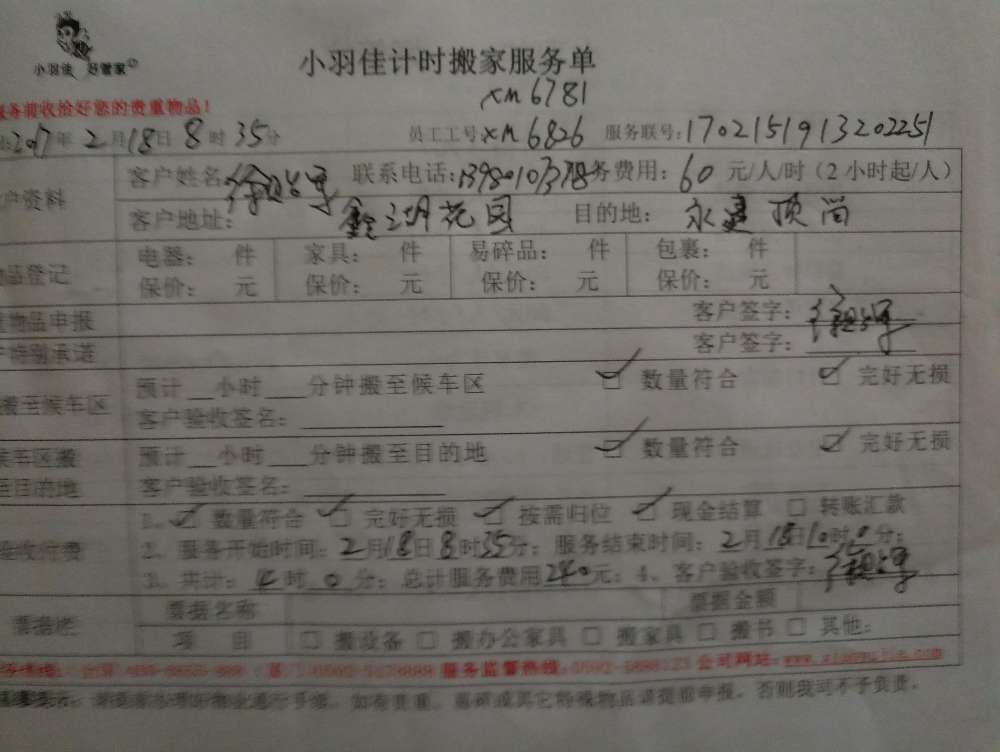 小羽佳 好管家
小羽佳计时搬家服务单
xm6781
服务前收恰好您的贵重物品!
2017年2月18日8时35分 员工工号:xm6826 服务联号:1702151913202251
客户资料 客户姓名: 联系电话: 服务费用:60元/人/时(2小时起/人)
客户地址:鑫湖花园 目的地:永建顶尚
物品登记 电器: 件 家具: 件 易碎品: 件 包裹: 件
保价: 元 保价: 元 保价: 元 保价: 元
物品申报 客户签字:
特别承诺 客户签字:
搬至候车区 预计__小时___分钟搬至候车区 ☑ 数量符合 ☑ 完好无损
客户验收签名:
候车区搬至目的地 预计__小时___分钟搬至目的地 ☑ 数量符合 ☑ 完好无损
客户验收签名:
验收付费 1、☑ 数量符合 ☑ 完好无损 ☑ 按需归位 ☑ 现金结算 □ 转账汇款
2、服务开始时间:2月18日8时35分;服务结束时间:2月18日10时0分;
3、共计:4时0分;总计服务费用240元;4、客户验收签字:
票据栏 票据名称 票据金额
项 目 □ 搬设备 □ 搬办公家具 □ 搬家具 □ 搬书 □ 其他:
服务监督热线: 公司网站:
如有贵重、易碎或其它特殊物品请提前申报,否则我司不予负责。